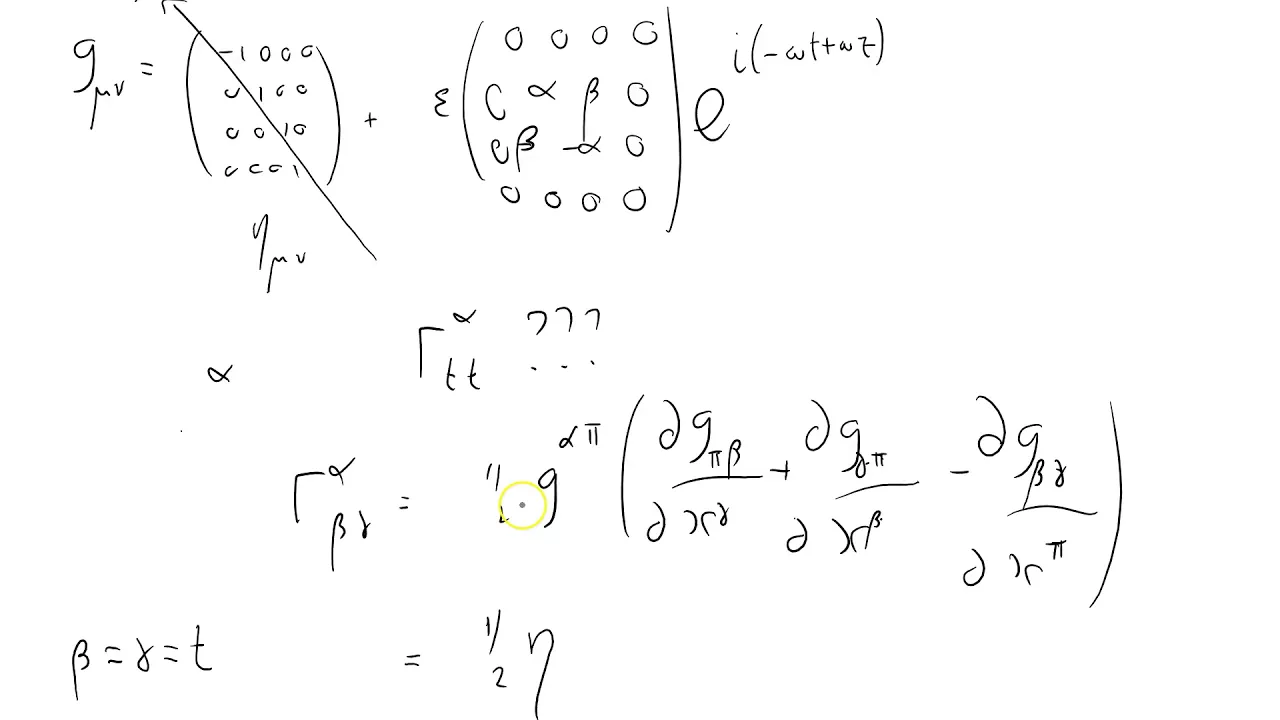 g_μν = ( -1 0 0 0 / 0 1 0 0 / 0 0 1 0 / 0 0 0 1 ) + ε ( 0 0 0 0 / 0 α β 0 / 0 β -α 0 / 0 0 0 0 ) e^{i(-ωt+ωz)}
η_μν
Γ^α_tt ??? ...
α
Γ^α_βγ = 1/2 g^{απ} ( ∂g_πβ / ∂x^γ + ∂g_γπ / ∂x^β - ∂g_βγ / ∂x^π )
β = γ = t = 1/2 η